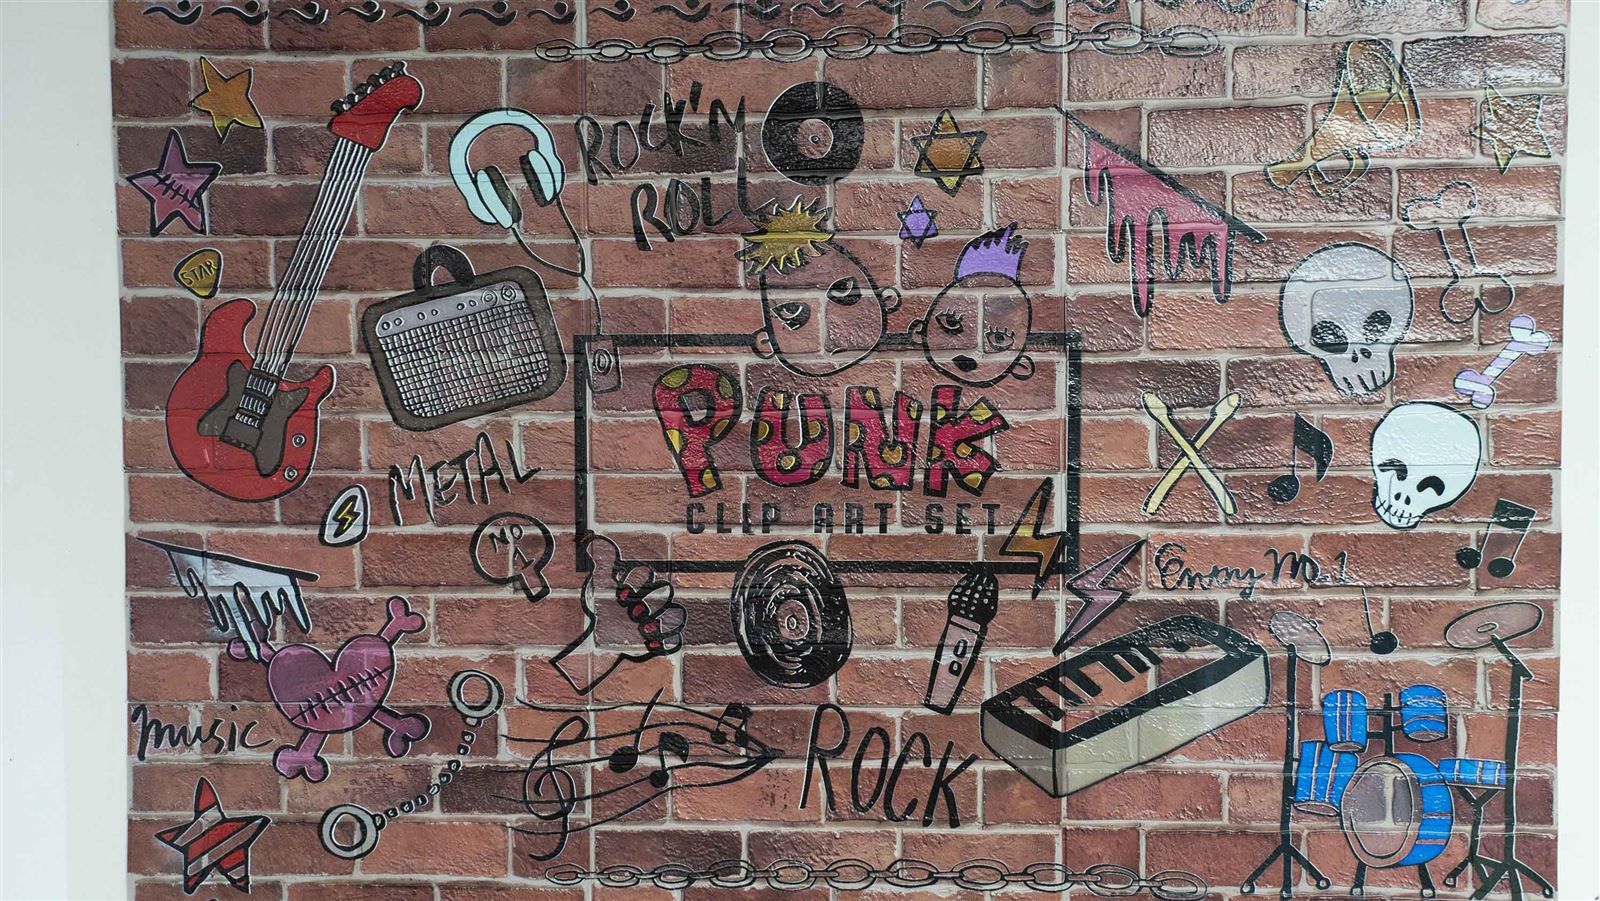 ROCK'N
ROLL
STAR
PUNK
CLIP ART SET
METAL
NO
1
Enemy No.1
music
ROCK